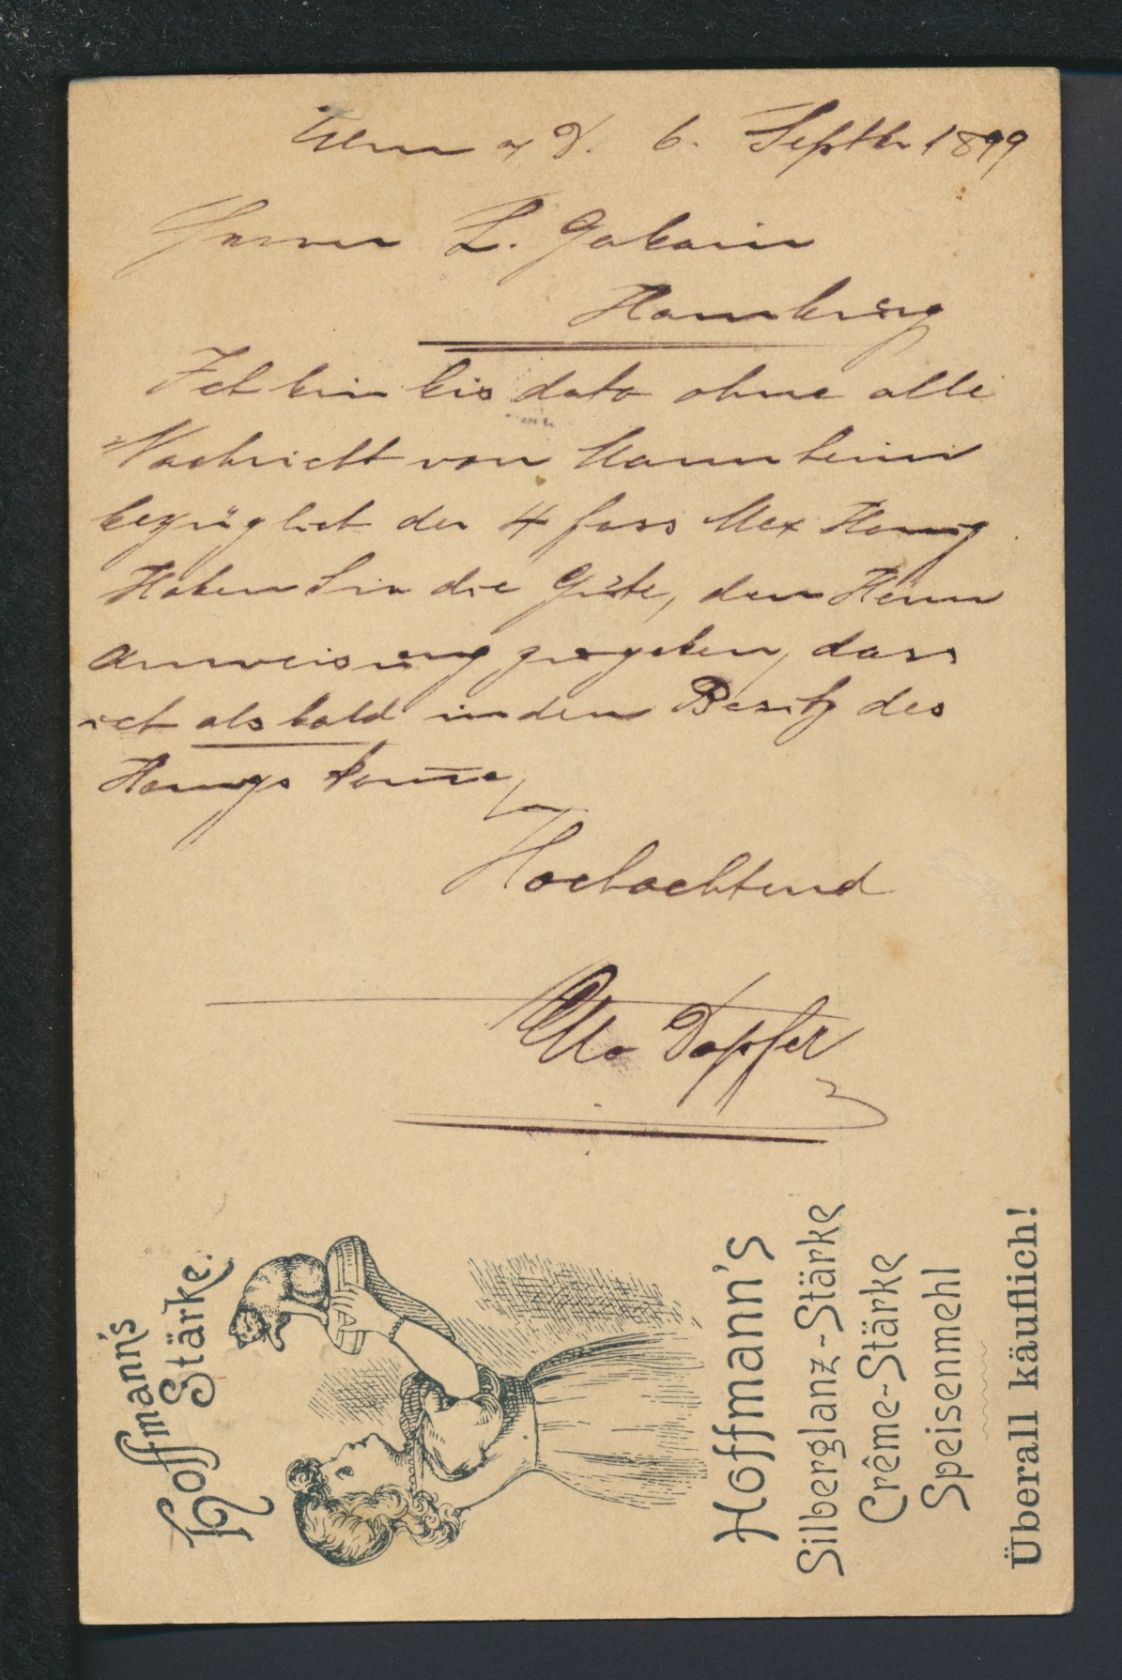 Ulm a/D. 6. Septbr 1899
Herrn L. Gabain
Hamburg
Ich bin bis dato ohne alle
Nachricht von Mannheim
bezüglich der 4 fass Mex Honig
Haben Sie die Güte, den Herrn
anweisung zu geben, dass
ich als bald in den Besitz des
Honigs komme,
Hochachtend
Otto Dopfer
Hoffmann's
Stärke.
Hoffmann's
Silberglanz-Stärke
Crême-Stärke
Speisenmehl
Überall käuflich!